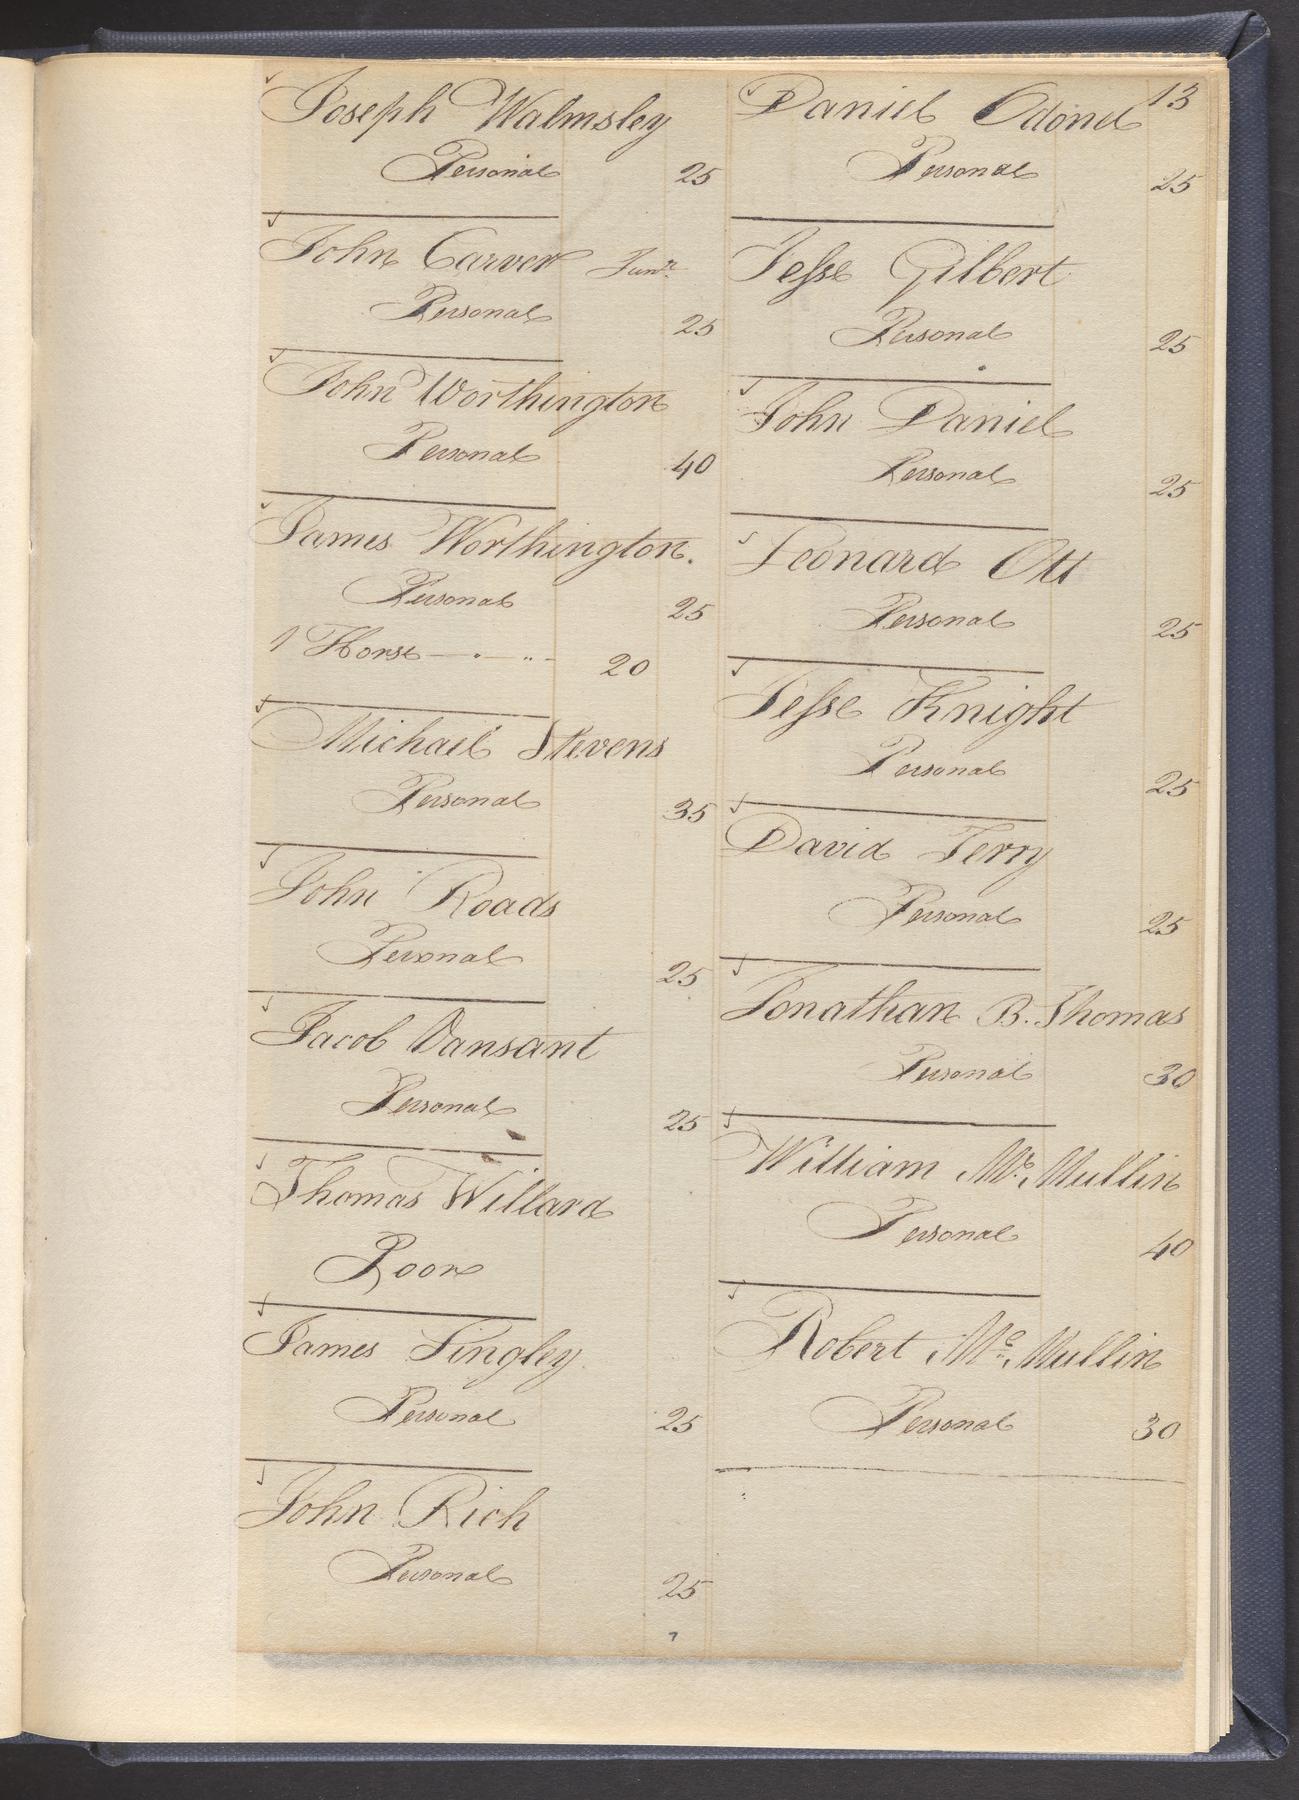 Joseph Walmsley
Personal 25
John Carver Junr.
Personal 25
John Worthington
Personal 40
James Worthington.
Personal 25
1 Horse 20
Michael Stevens
Personal 35
John Roads
Personal 25
Jacob Vansant
Personal 25
Thomas Willard
Poor
James Singley
Personal 25
John Rich
Personal 25
7
13
Daniel Odonel
Personal 25
Jesse Gilbert
Personal 25
John Daniel
Personal 25
Leonard Ott
Personal 25
Jesse Knight
Personal 25
David Terry
Personal 25
Jonathan B. Thomas
Personal 30
William Mc. Mullin
Personal 40
Robert Mc. Mullin
Personal 30